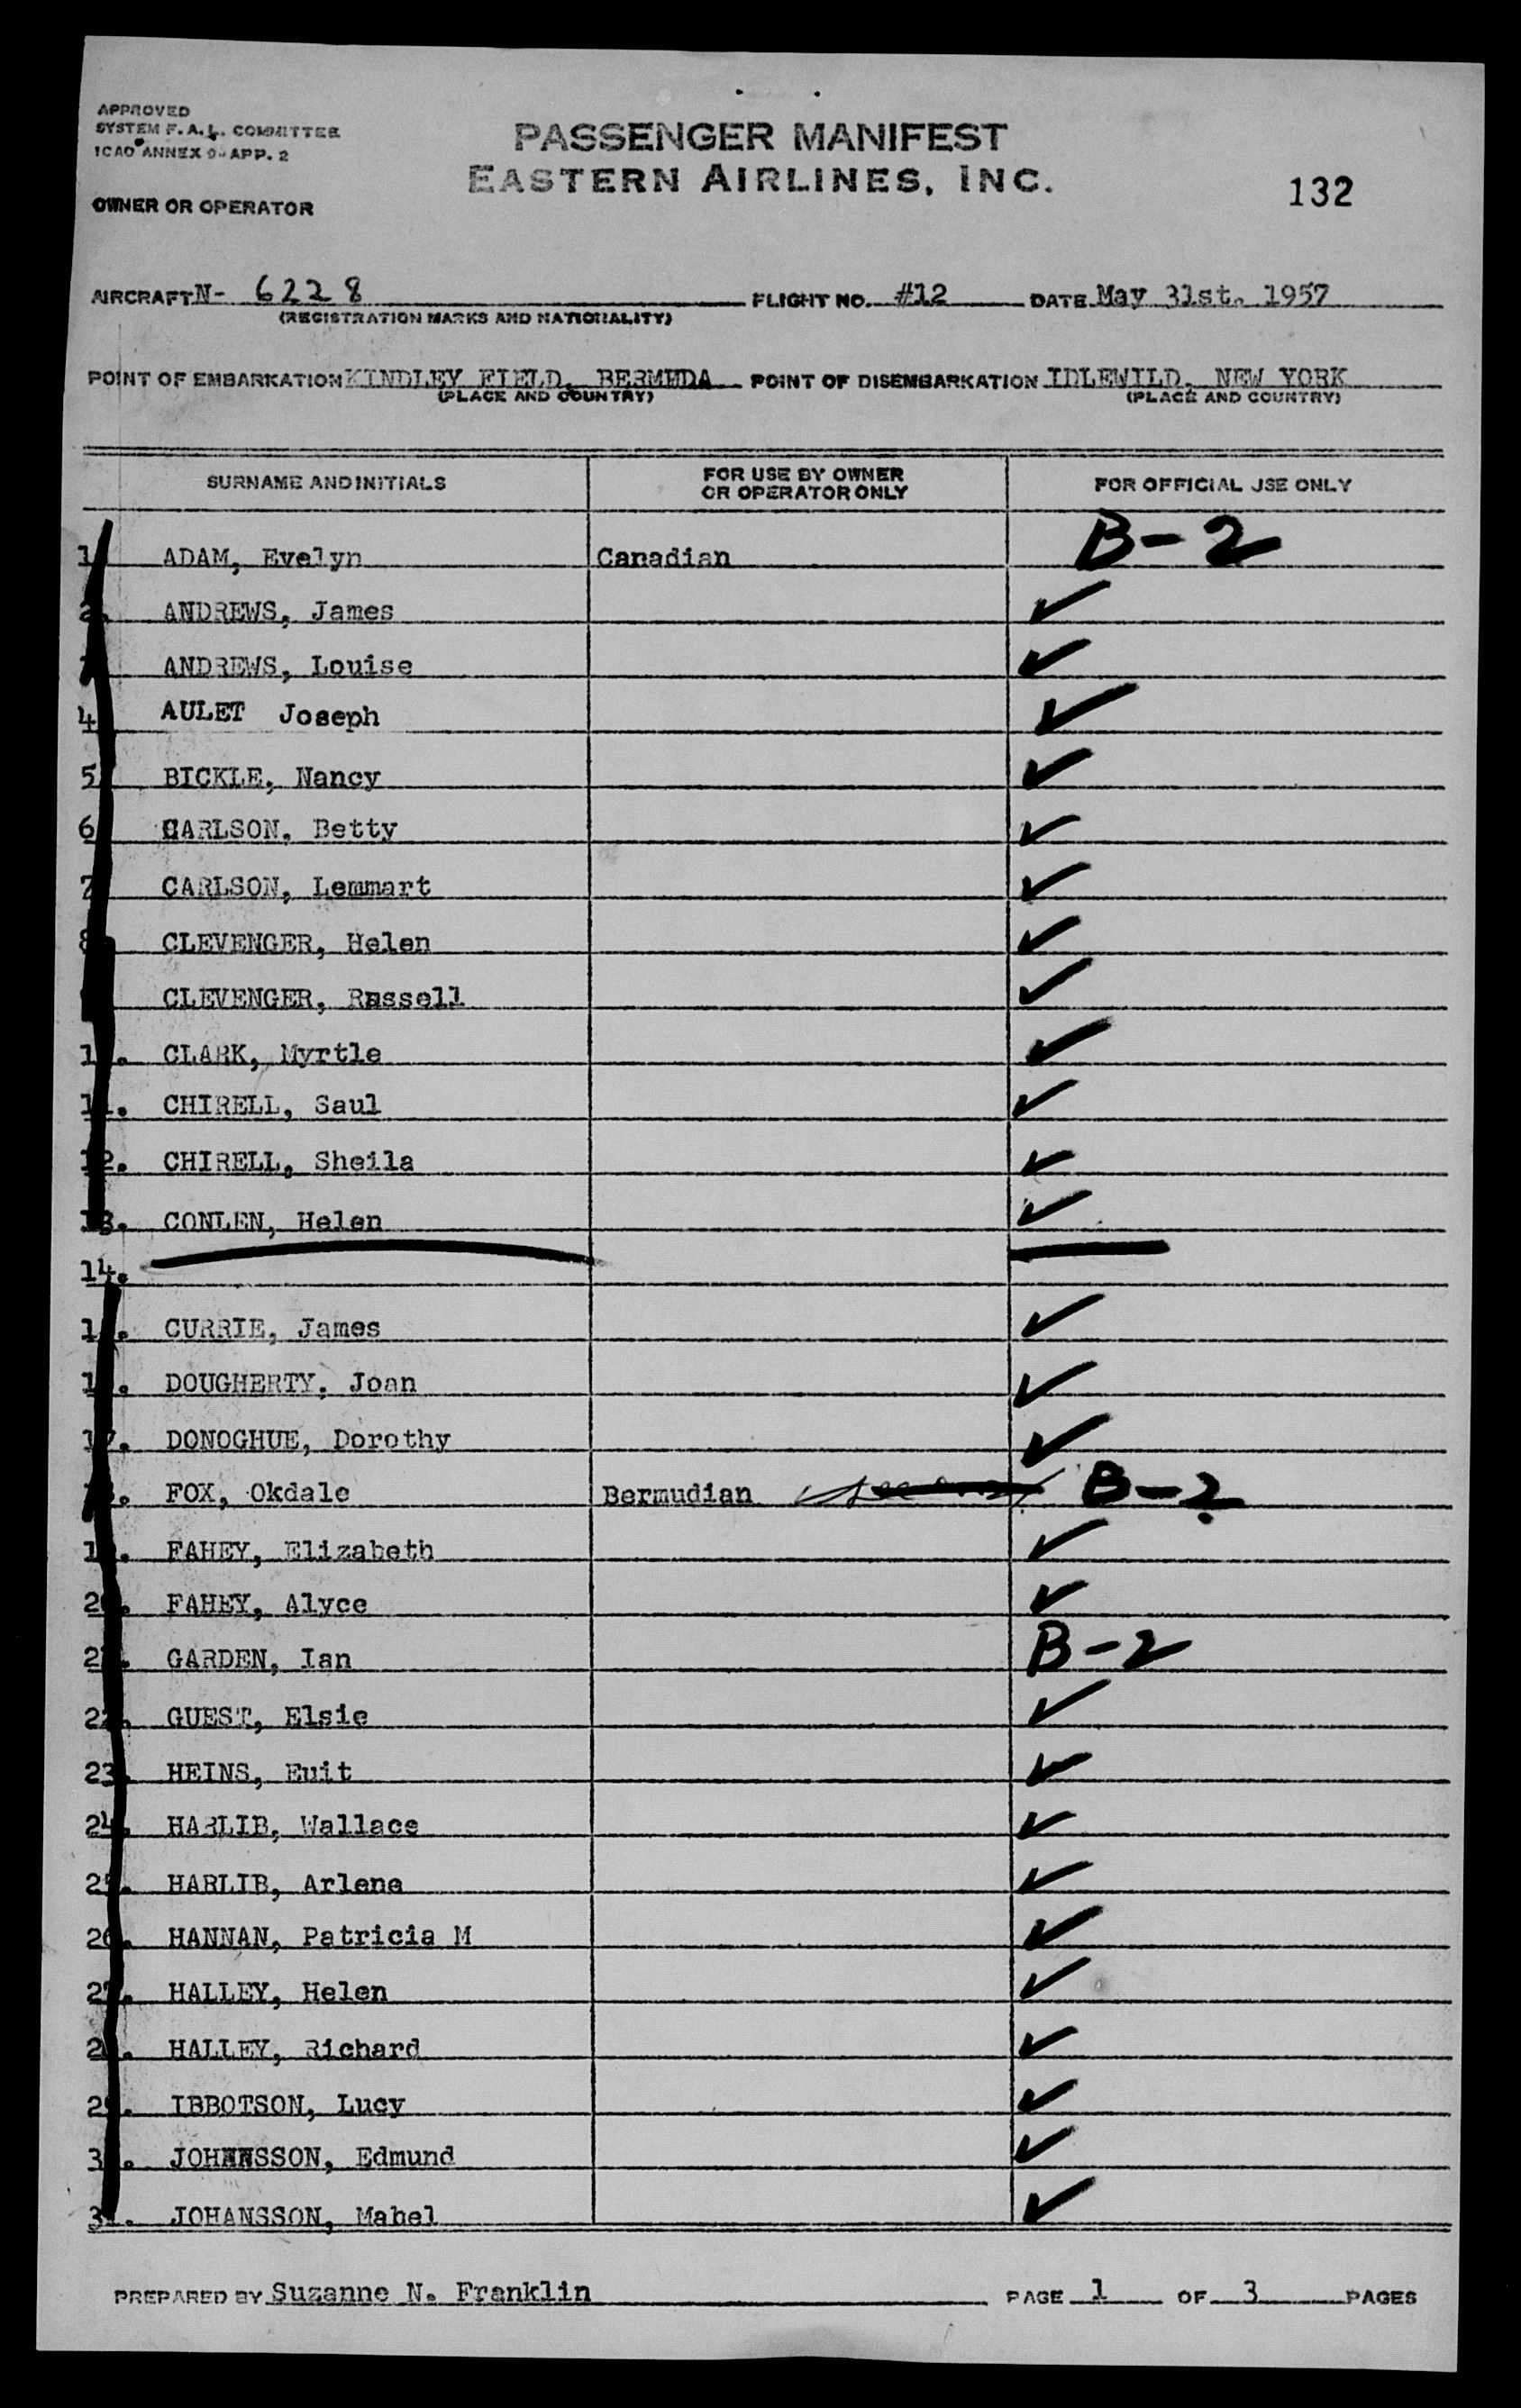 APPROVED
SYSTEM F.A.L. COMMITTEE
ICAO ANNEX 9-APP. 2
PASSENGER MANIFEST
EASTERN AIRLINES, INC.
132
OWNER OR OPERATOR
AIRCRAFT N- 6228 FLIGHT NO. #12 DATE May 31st. 1957
(REGISTRATION MARKS AND NATIONALITY)
POINT OF EMBARKATION KINDLEY FIELD, BERMUDA POINT OF DISEMBARKATION IDLEWILD, NEW YORK
(PLACE AND COUNTRY) (PLACE AND COUNTRY)
SURNAME AND INITIALS FOR USE BY OWNER OR OPERATOR ONLY FOR OFFICIAL USE ONLY
1 ADAM, Evelyn Canadian B-2
2. ANDREWS, James ✓
ANDREWS, Louise ✓
4 AULET Joseph ✓
5 BICKLE, Nancy ✓
6 CARLSON, Betty ✓
7 CARLSON, Lemmart ✓
8 CLEVENGER, Helen ✓
CLEVENGER, Russell ✓
1 . CLARK, Myrtle ✓
11. CHIRELL, Saul ✓
12. CHIRELL, Sheila ✓
13. CONLEN, Helen ✓
14.
1 . CURRIE, James ✓
1 . DOUGHERTY, Joan ✓
17. DONOGHUE, Dorothy ✓
. FOX, Okdale Bermudian B-2
1 . FAHEY, Elizabeth ✓
20. FAHEY, Alyce ✓
2 . GARDEN, Ian B-2
22. GUEST, Elsie ✓
23. HEINS, Euit ✓
24. HARLIB, Wallace ✓
25. HARLIB, Arlene ✓
26. HANNAN, Patricia M ✓
27. HALLEY, Helen ✓
2 . HALLEY, Richard ✓
29. IBBOTSON, Lucy ✓
3 . JOHANSSON, Edmund ✓
31. JOHANSSON, Mabel ✓
PREPARED BY Suzanne N. Franklin PAGE 1 OF 3 PAGES